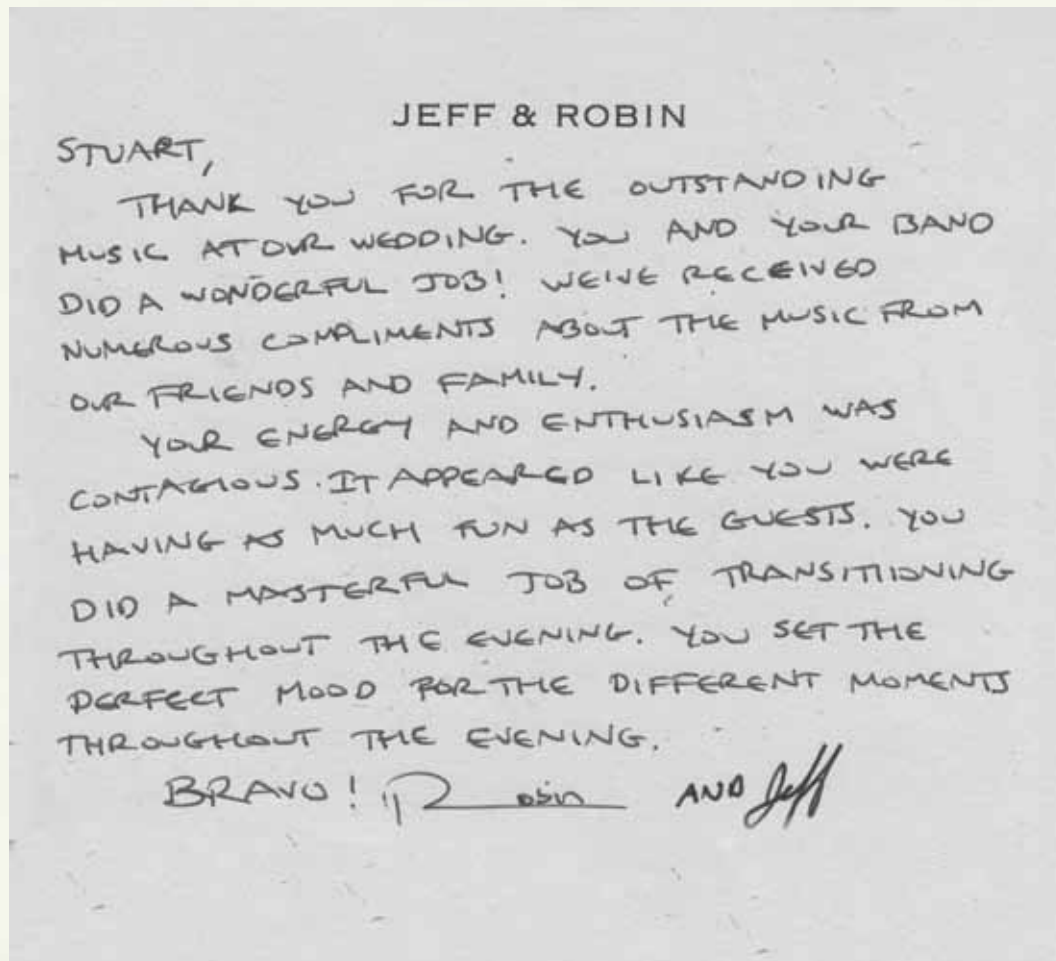 JEFF & ROBIN
STUART,
THANK YOU FOR THE OUTSTANDING
MUSIC AT OUR WEDDING. YOU AND YOUR BAND
DID A WONDERFUL JOB! WE'VE RECEIVED
NUMEROUS COMPLIMENTS ABOUT THE MUSIC FROM
OUR FRIENDS AND FAMILY.
YOUR ENERGY AND ENTHUSIASM WAS
CONTAGIOUS. IT APPEARED LIKE YOU WERE
HAVING AS MUCH FUN AS THE GUESTS. YOU
DID A MASTERFUL JOB OF TRANSITIONING
THROUGHOUT THE EVENING. YOU SET THE
PERFECT MOOD FOR THE DIFFERENT MOMENTS
THROUGHOUT THE EVENING.
BRAVO! Robin AND Jeff